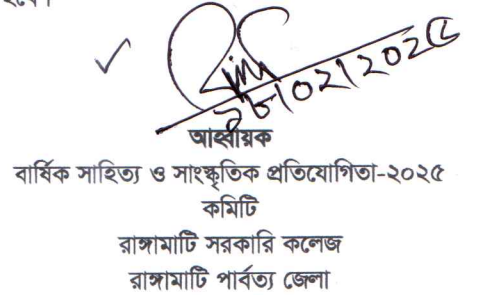 ১৮/০২/২০২৫
আহ্বায়ক
বার্ষিক সাহিত্য ও সাংস্কৃতিক প্রতিযোগিতা-২০২৫
কমিটি
রাঙ্গামাটি সরকারি কলেজ
রাঙ্গামাটি পার্বত্য জেলা